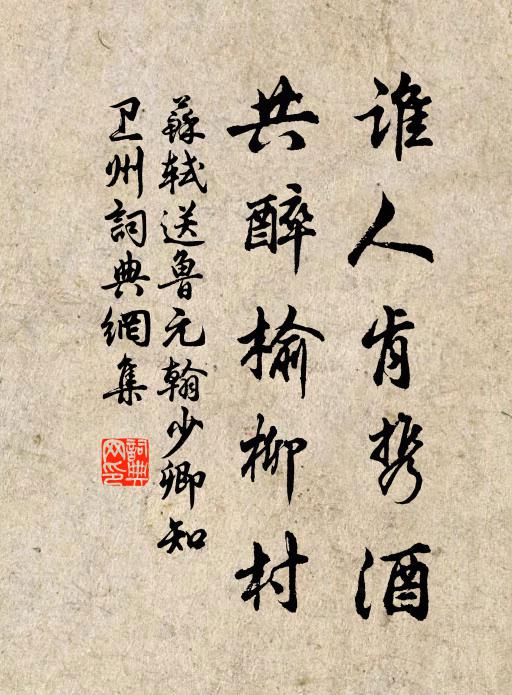 谁人肯携酒
共醉榆柳村
蘇軾送鲁元翰少卿知
卫州詞典網集
詞典网印